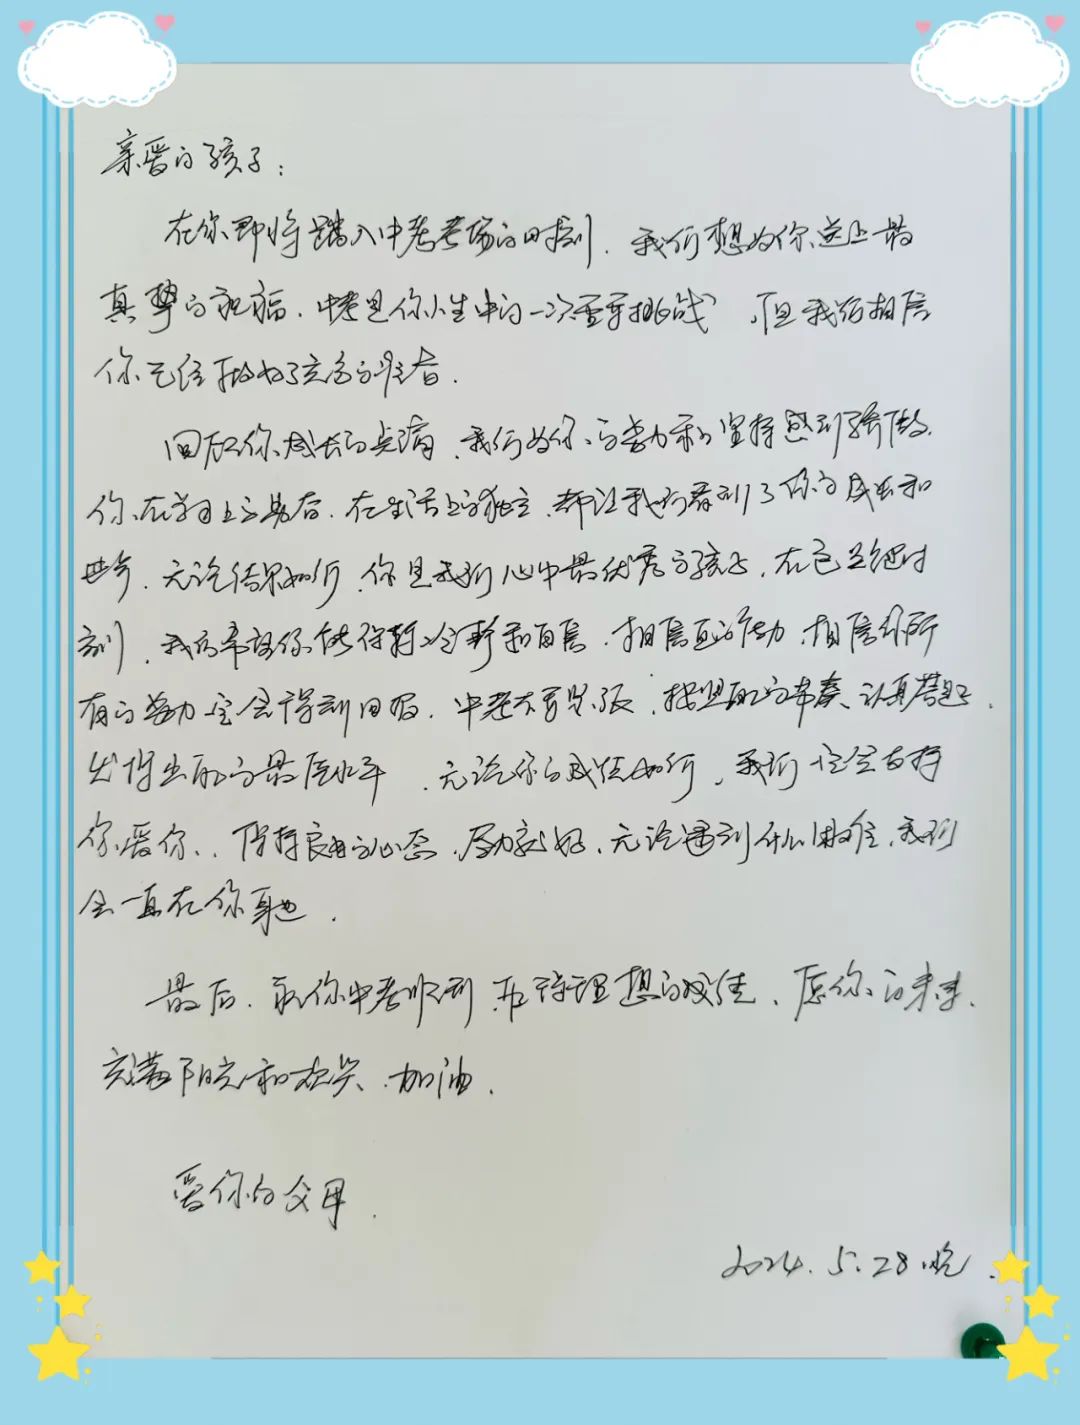 亲爱的孩子：
在你即将踏入中考考场的时刻，我们想为你送上最
真挚的祝福．中考是你人生中的一次重要挑战，但我们相信
你已经做好了充分的准备．
回顾你成长的点滴，我们为你的努力和坚持感到骄傲．
你在学习上的勤奋．在生活上的独立，都让我们看到了你的成长和
无论结果如何，你是我们心中最优秀的孩子，在这
刻，我们希望你能保持冷静和自信．相信自己的能力，相信你所
有的努力一定会得到回报．中考不要紧张，按照自己的节奏、认真答题．
发挥出自己的最佳水平，无论你的成绩如何，我们一定会支持
你爱你．保持良好的心态，尽力就好．无论遇到什么困难，我们
会一直在你身边．
最后．祝你中考顺利，取得理想的成绩，愿你的未来．
充满阳光和欢笑、加油．
爱你的父母．
2024.5.28晚．